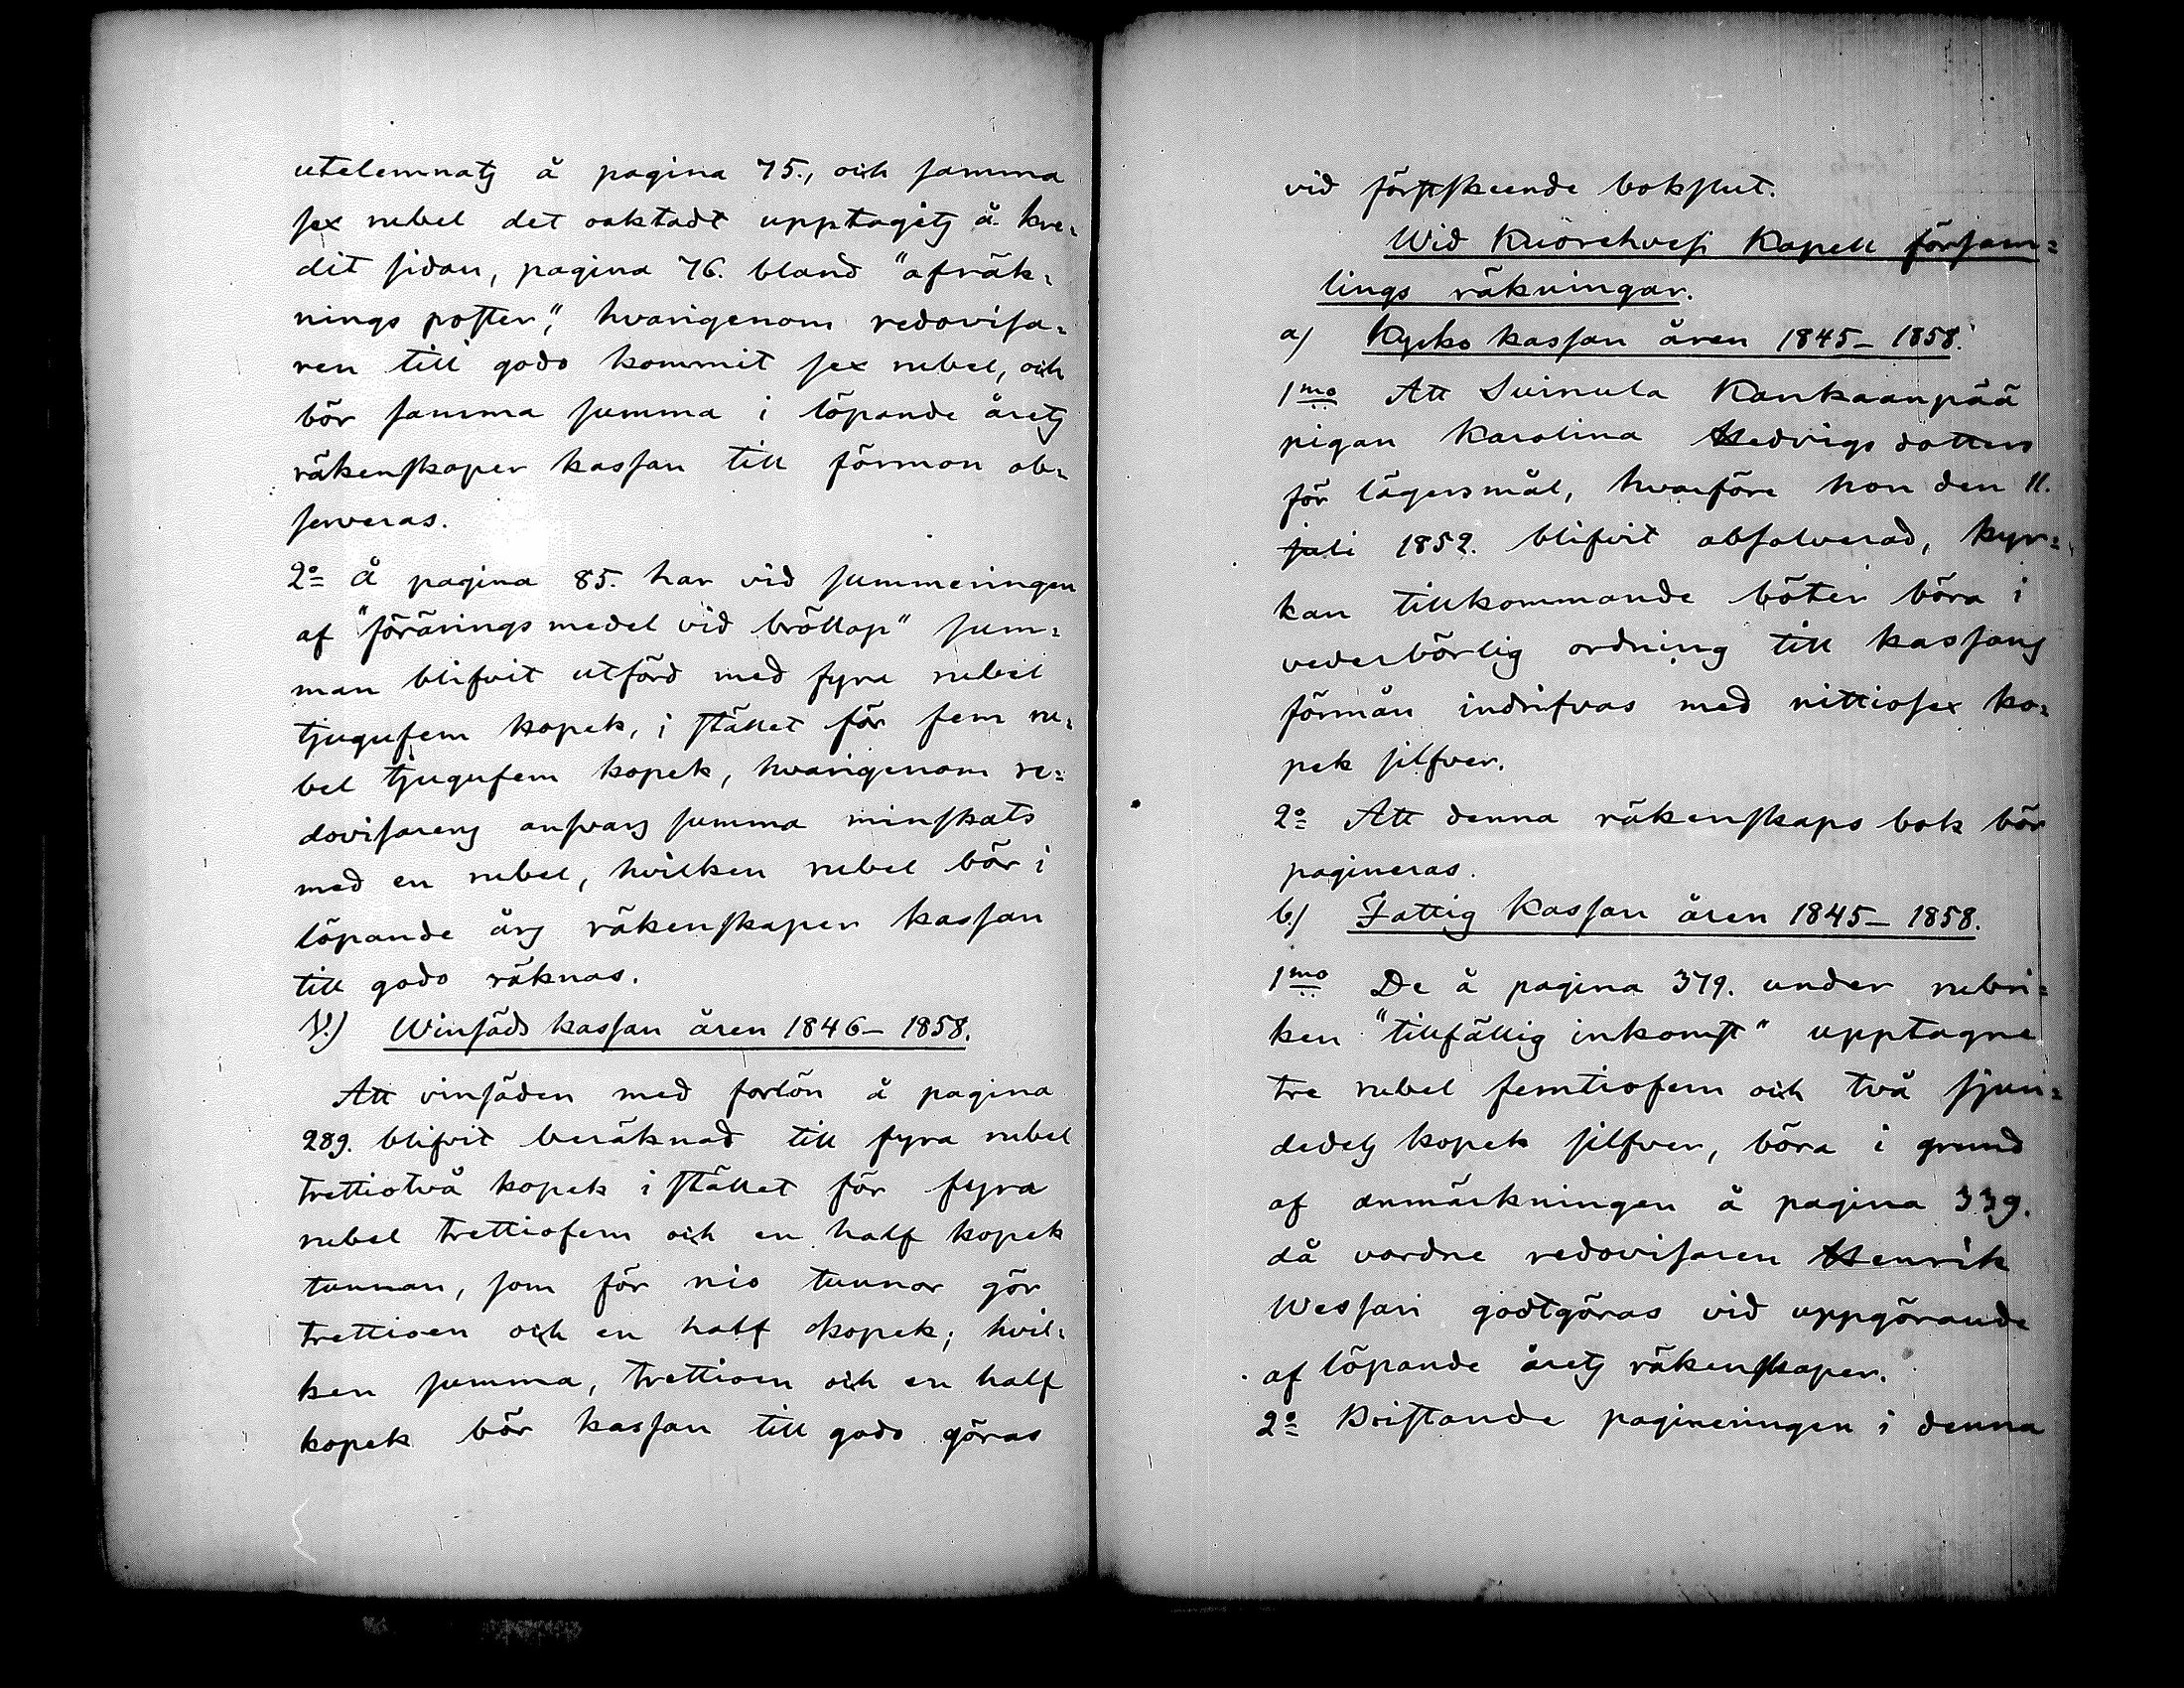 utelemnats å pagina 75., och samma
sex rubel det oaktadt upptagits å kre=
dit sidan, pagina 76. bland "afräk=
nings poster", hvarigenom redovisa=
ren till godo kommit sex rubel, och
bör samma summa i löpande årets
räkenskaper kassan till förmon ob=
serveras.
2o Å pagina 85. har vid summeringen
af "förärings medel vid bröllop" sum=
man blifvit utförd med fyra rubel
tjugufem kopek, i stället för fem ru=
bel tjugufem kopek, hvarigenom re=
dovisarens ansvars summa minskats
med en rubel, hvilken rubel bör i
löpande års räkenskaper kassan
till godo räknas.
V.) Winsäds kassan åren 1846–1858.
Att vinsäden med forlön å pagina
289. blifvit beräknad till fyra rubel
trettiotvå kopek i stället för fyra
rubel trettiofem och en half kopek
tunnan, som för nio tunnor gör
trettioen och en half kopek; hvil=
ken summa, trettioen och en half
kopek bör kassan till godo göras
vid förstskeende bokslut.
Wid Kuorehvesi Kapell församm=
lings räkningar.
a) Kyrko kassan åren 1845–1858.
1mo Att Suinula Kankaanpää
pigan Karolina Hedvigsdotters
för lägersmål, hvarföre hon den 11.
juli 1852. blifvit absolverad, kyr=
kan tillkommande böter böra i
vederbörlig ordning till kassans
förmån indrifvas med nittiosex ko=
pek silfver.
2o Att denna räkenskaps bok bör
pagineras.
b) Fattig Kassan åren 1845–1858.
1mo De å pagina 379. under rubri=
ken "tillfällig inkomst" upptagne
tre rubel femtiofem och två sjun=
dedels kopek silfver, böra i grund
af anmärkningen å pagina 339.
då vordne redovisaren Henrik
Wessari godtgöras vid uppgörande
af löpande årets räkenskaper.
2o Bristande pagineringen i denna